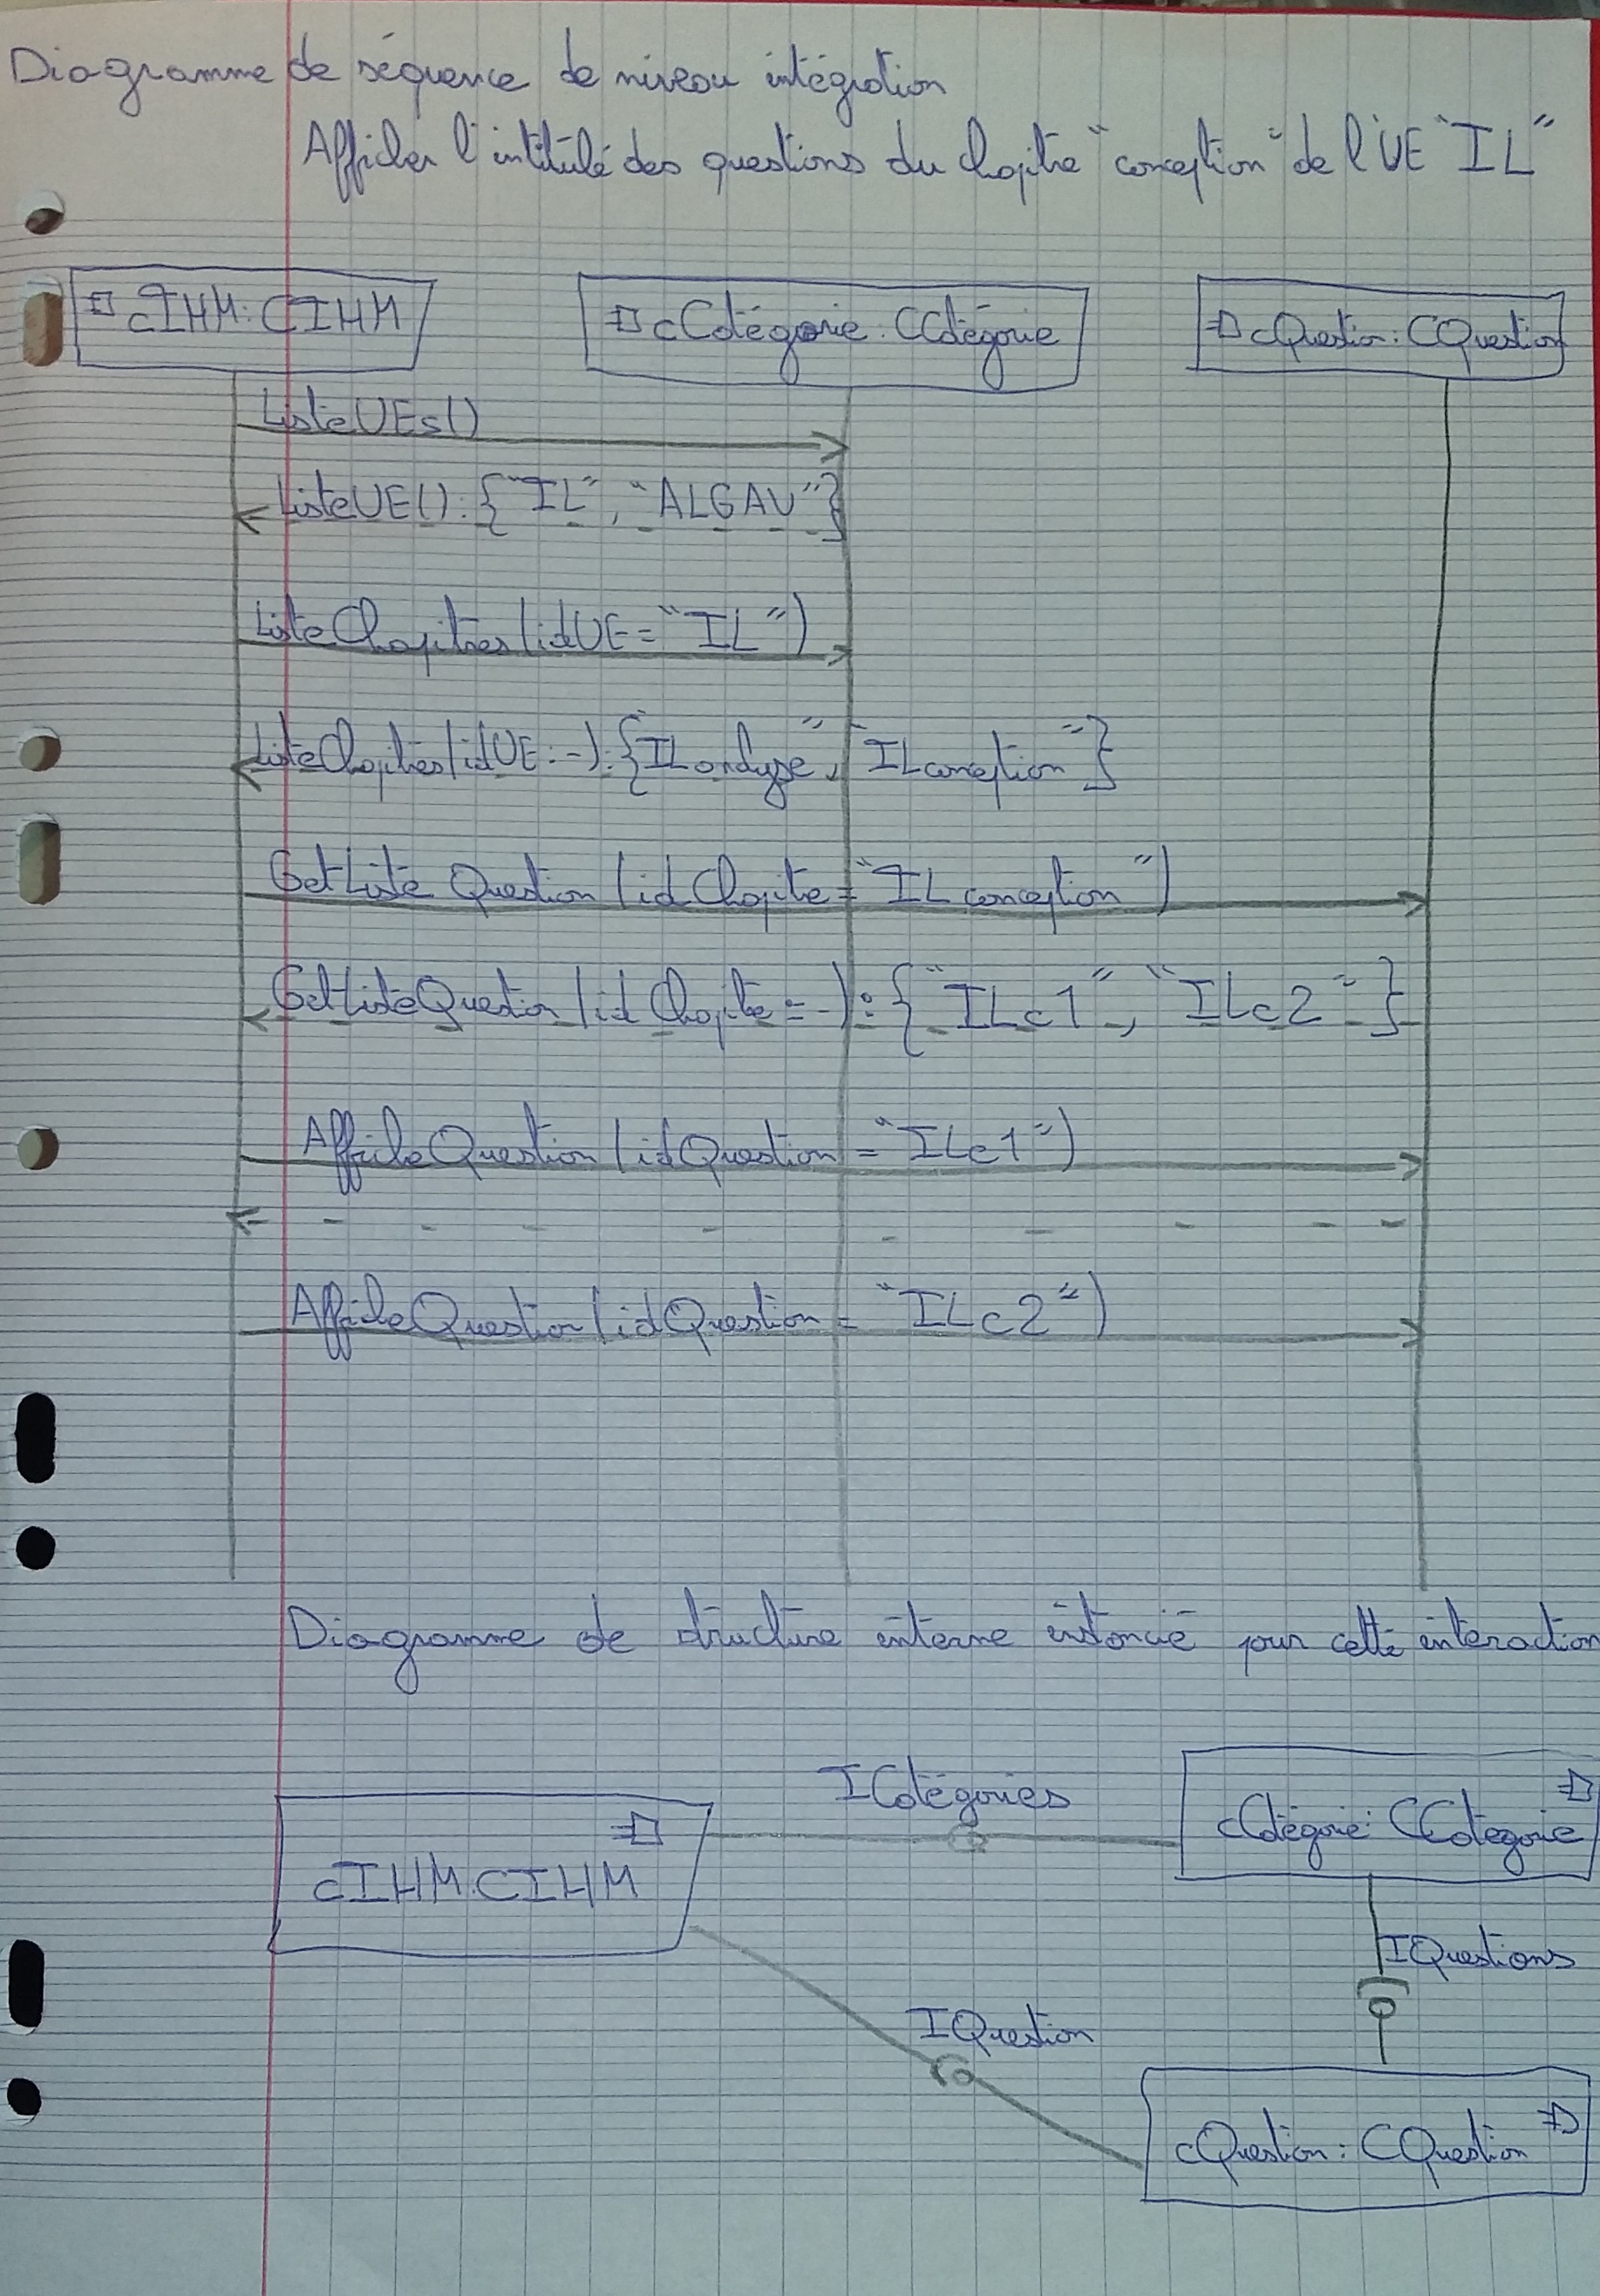 Diagramme de séquence de niveau intégration
Afficher l'intitulé des questions du chapitre "conception" de l'UE "IL"
cIHM : CIHM
cCatégorie : CCatégorie
cQuestion : CQuestion
ListeUEs()
ListeUE() : {"IL", "ALGAV"}
ListeChapitres(idUE = "IL")
ListeChapitres(idUE = -) : {"ILanalyse", "ILconception"}
GetListeQuestion(idChapitre = "ILconception")
GetListeQuestion(idChapitre = -) : {"ILc1", "ILc2"}
AfficheQuestion(idQuestion = "ILc1")
AfficheQuestion(idQuestion = "ILc2")
Diagramme de structure interne instancié pour cette interaction
ICatégories
cCatégorie : CCategorie
cIHM : CIHM
IQuestions
IQuestion
cQuestion : CQuestion